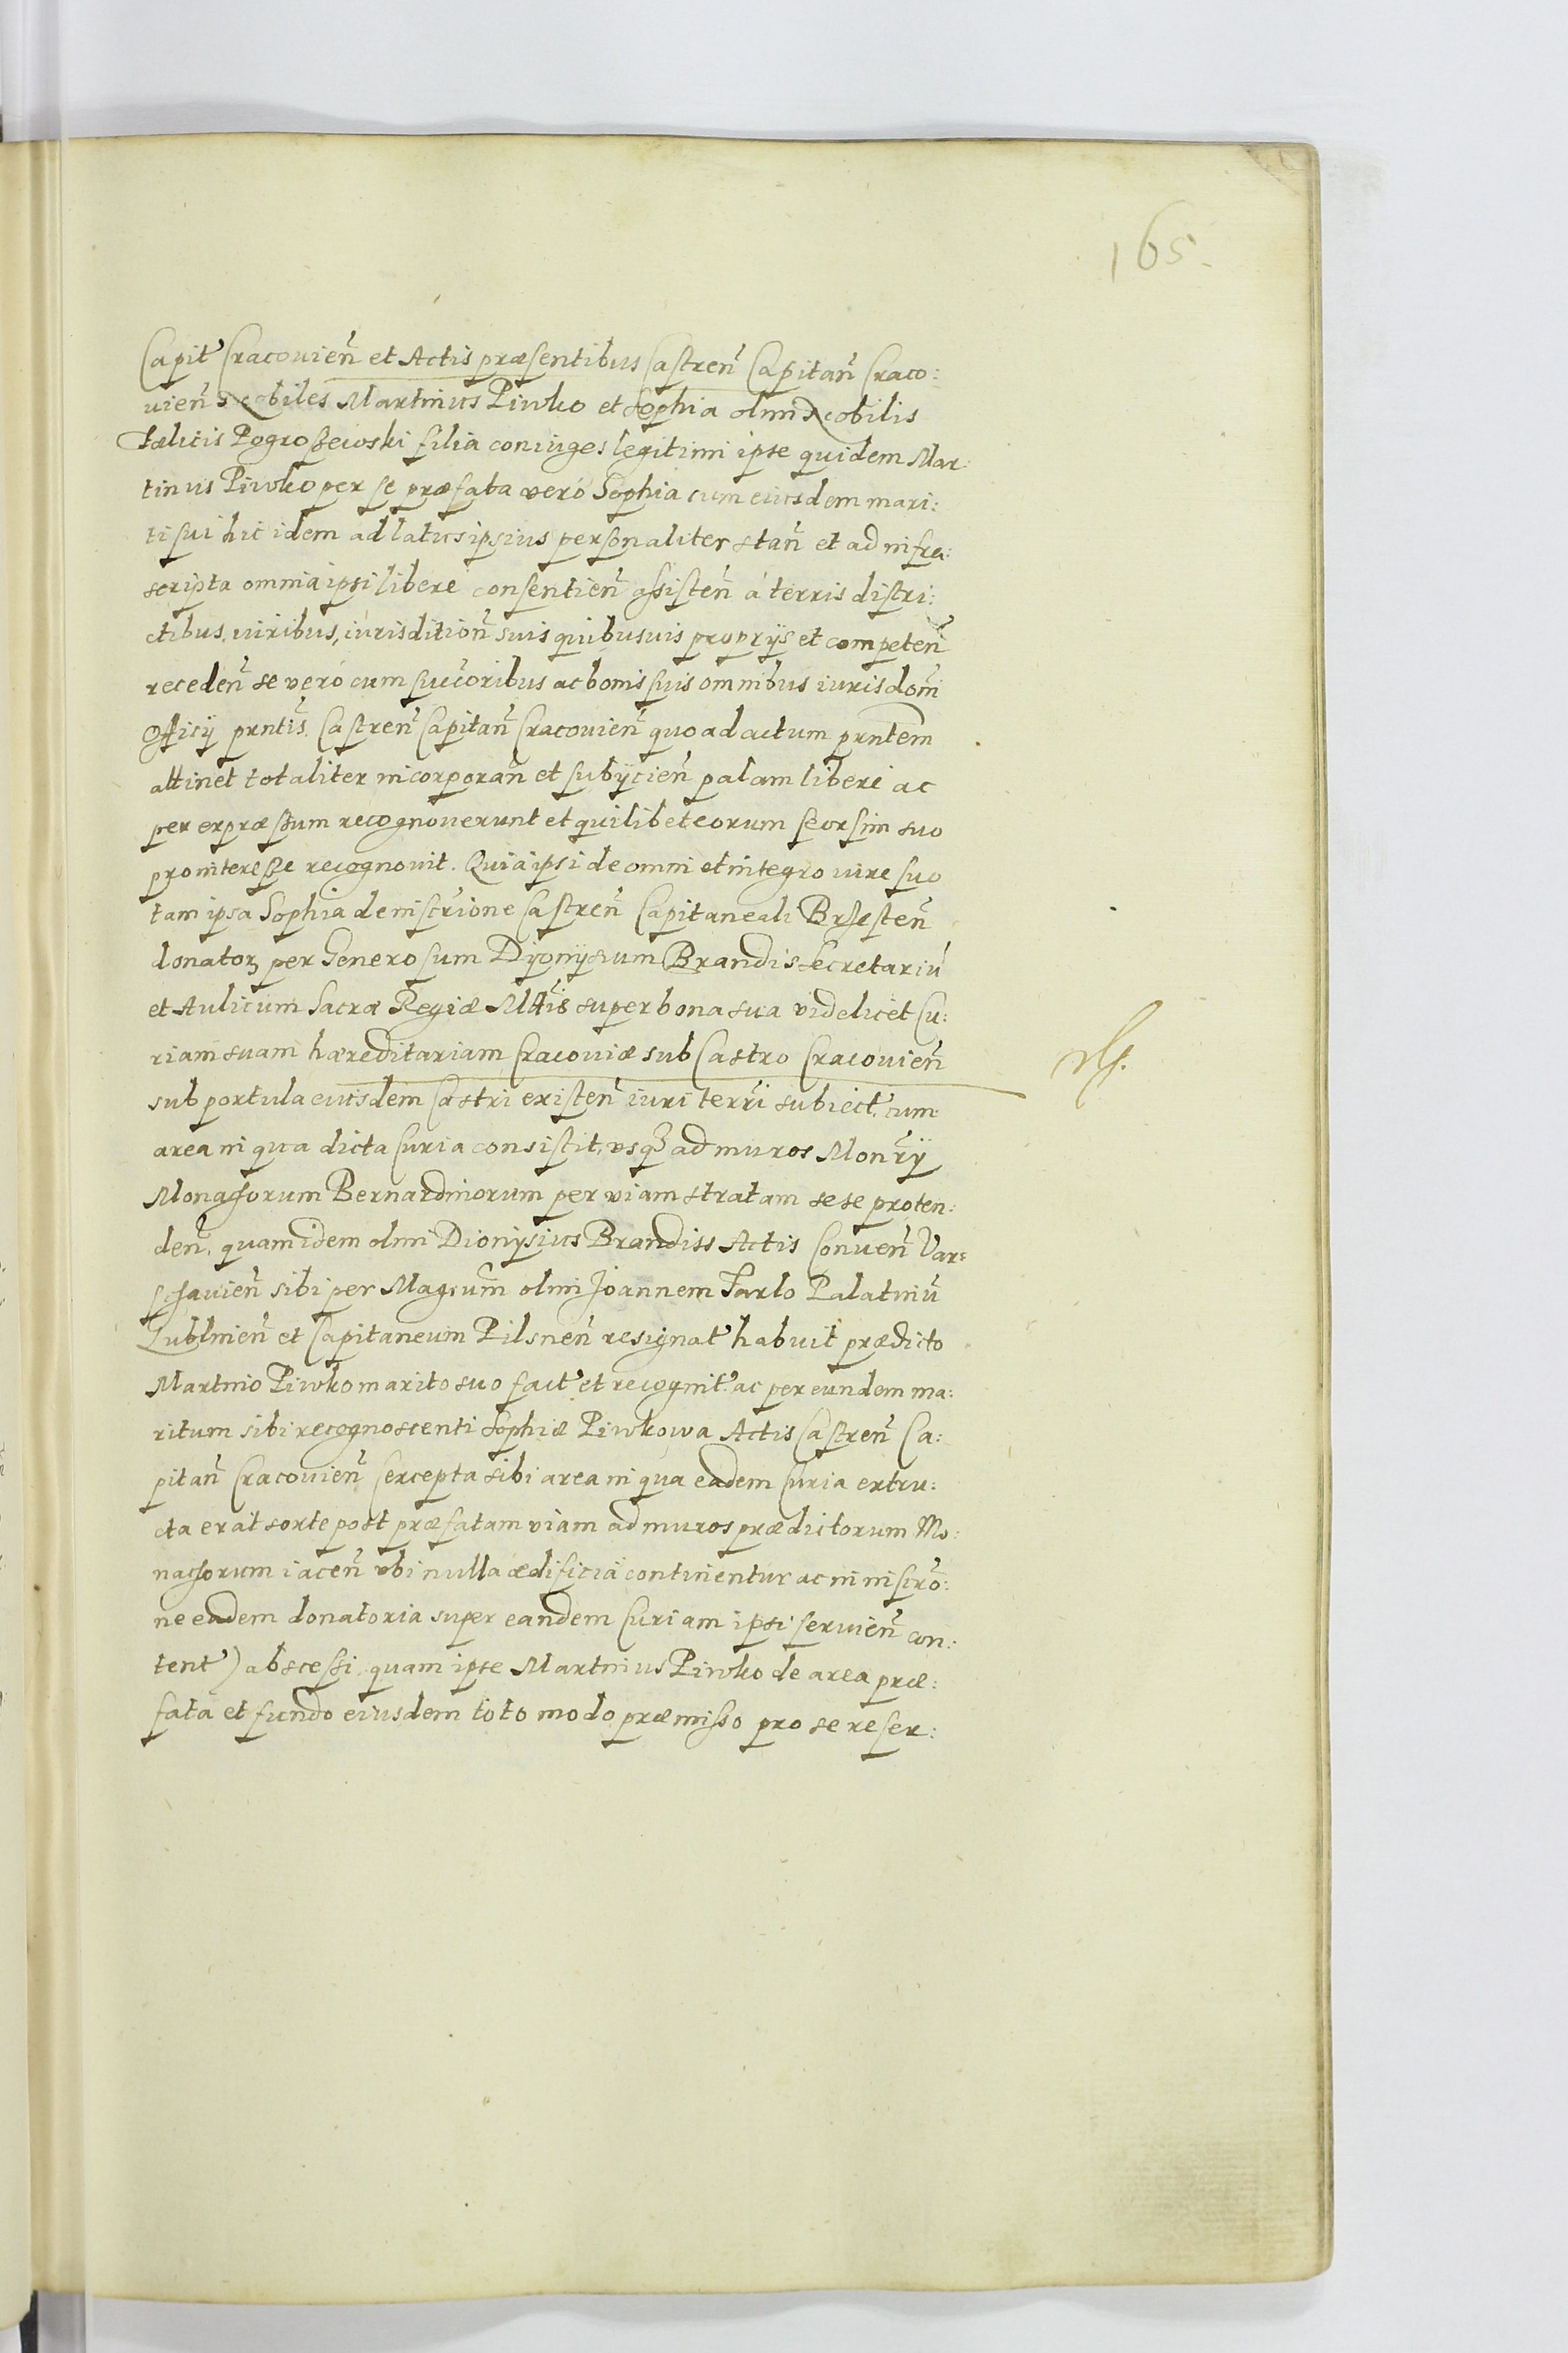 165.
Capit Cracovien̄ et Actis præsentibus Castren̄ Capitan̄ Craco:
vien̄ Nobiles Martinus Piwko et Sophia olim Nobilis
Fælicis Pogroszewski filia coniuges legitimi ipse quidem Mar:
tinus Piwko per se præfata veró Sophia cum eiusdem mari:
ti sui hic idem ad latus ipsius personaliter stan̄ et ad infra:
scripta omnia ipsi libere consentien̄ assisten̄ á terris distri:
ctibus, iuribus, iurisdition̄ suis quibusuis proprijs et competen̄
receden̄ se veró cum succ̄oribus ac bonis suis omnibus iurisdom̄
Officij prntis̄ Castren̄ Capitan̄ Cracouien̄ quo ad actum prntem̄
attinet totaliter incorporan̄ et subijcien̄ palam liberé ac
per expræssum recognouerunt et quilibet eorum seorsim suo
pro interesse recognouit. Quia ipsi de omni et integro iure suo
tam ipsa Sophia de inscr̄ione Castren̄ Capitaneali Brzesten̄
donatoꝝ per Generosum Dyonysium Brandis Secretariū
et Aulicum Sacræ Regiæ Mttis̄ super bona sua videlicet Cu:
riam suam hæreditariam Cracouiæ sub Castro Cracouien̄
sub portula eiusdem Castri existen̄ iuri terr̄i subiect cum
area in qua dicta Curia consistit, vsqꝫ ad muros Monr̄ij
Monachorum Bernardinorum per viam stratam sese proten:
den̄, quam idem olim Dionÿsius Brandiss Actis Conuen̄ Var:
schauien̄ sibi per Magcum̄ olim Joannem Tarlo Palatinū
Lublinen̄ et Capitaneum Pilsnen̄ resignat habuit prædicto
Martino Piwko marito suo fact et recognit ac per eundem ma:
ritum sibi recognoscenti Sophiæ Piwkowa Actis Castren̄ Ca:
pitan̄ Cracouien̄ (excepta sibi area in qua eadem Curia extru:
cta erat sorte post præfatam viam ad muros prædictorum Mo:
nachorum iacen̄ vbi nulla ædificia continentur ac in inscr̄o:
ne eadem donatoria super eandem Curiam ipsi seruien̄ con:
tent) abscessi, quam ipse Martinus Piwko de area præ:
fata et fundo eiusdem toto modo præmisso pro se reser: